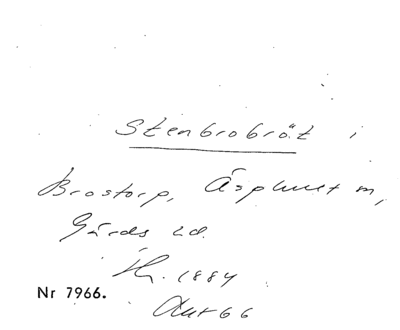 Stenbrobröt i
Brostorp, Äsphult m,
Gärds hd.
1884
Nr 7966.
66